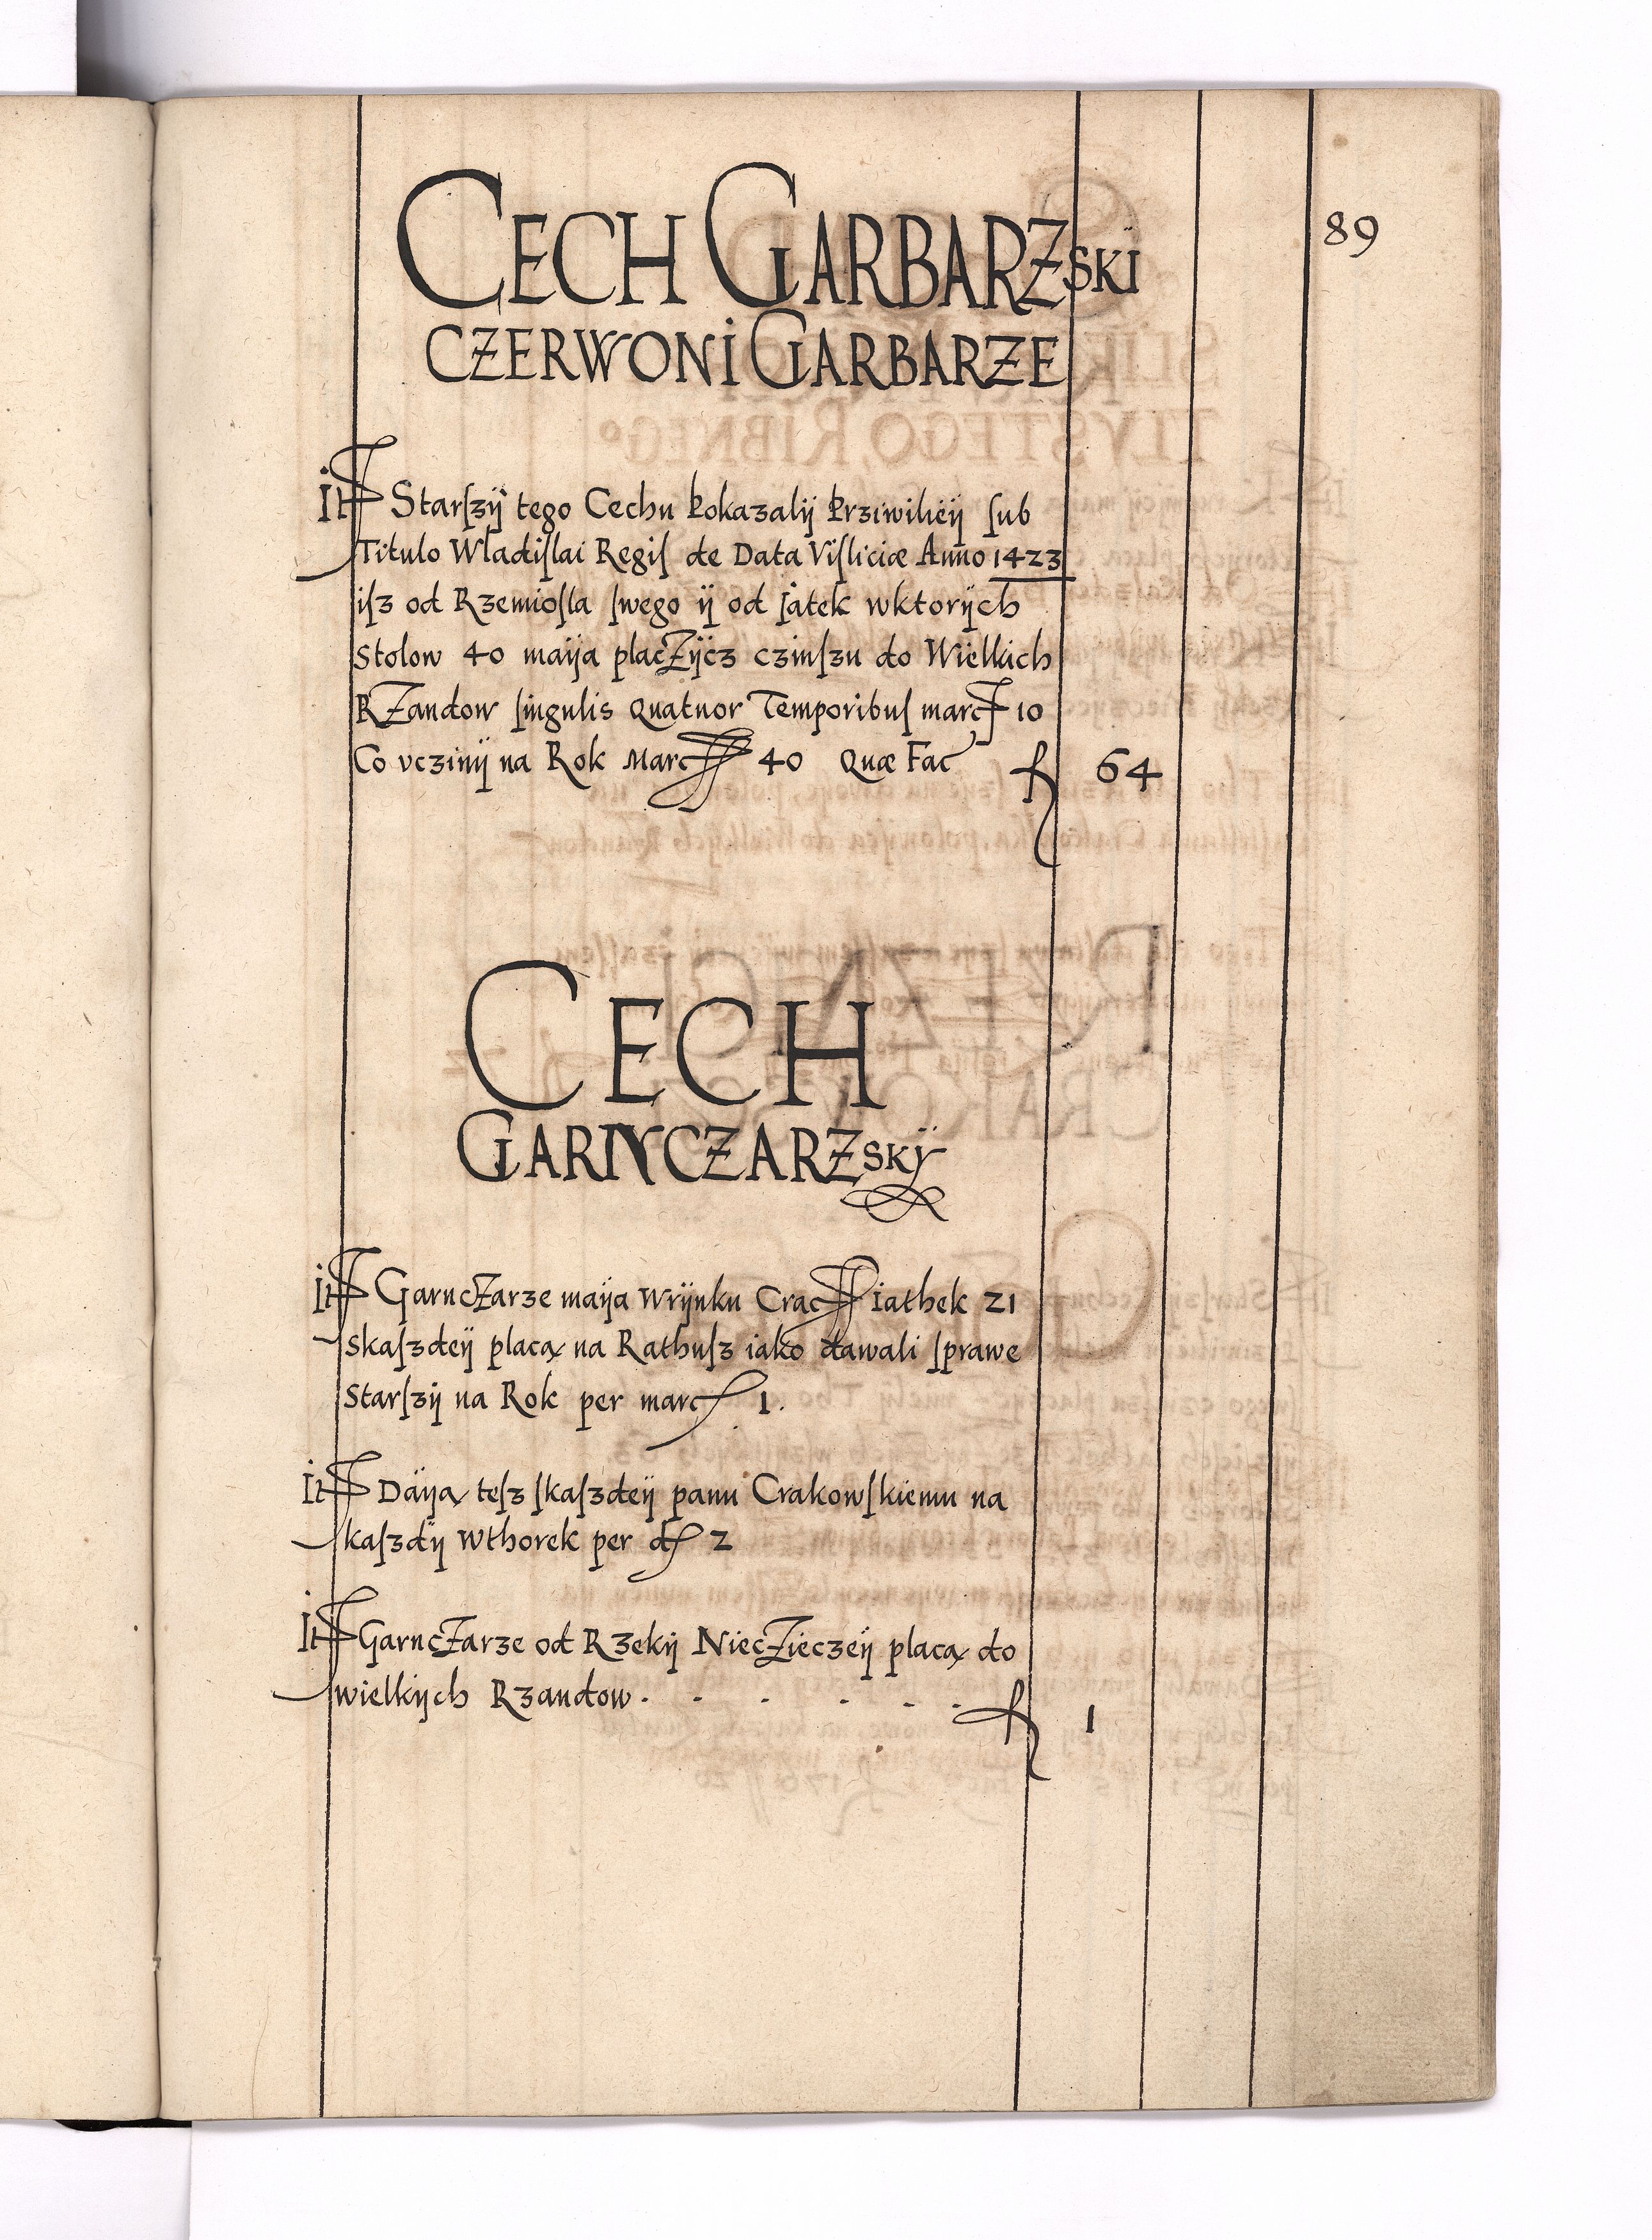 89
CECH GARBARZSKI
CZERWONI GARBARZE
It Starſzÿ tego Cechu Pokazalÿ Prziwilieÿ ſub
Titulo Wladiſlai Regiſ de Data Viſliciæ Anno 1423
iſz od Rzemioſla ſwego ÿ od jatek wktorÿch
Stolow 40 maÿa placZÿcz czinſzu do Wielkich
RZandow ſingulis Quatuor Temporibuſ marc 10
Co vczinÿ na Rok Marc 40 Quæ Fac f 64
CECH
GARNCZARZSKÿ
It GarncZarze maÿa wrÿnku Crac iathek 21
skaſzdeÿ placą na Rathuſz iako dawali ſprawe
Starſzÿ na Rok per marc 1.
It Daÿą teſz ſkaſzdeÿ panu Crakowſkiemu na
kaſzdÿ wthorek per d 2
It GarncZarze od Rzekÿ NiecZieczeÿ placą do
wielkÿch Rzandow . . . . . . f 1